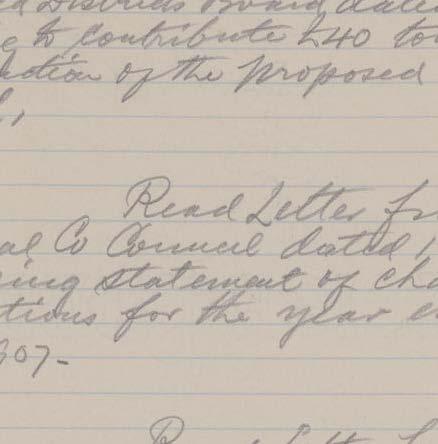 d Districts Board date
e to contribute £40 to
ction of the proposed
Read Letter fr
al Co Council dated 1
ing statement of cha
tions for the year e
307-
Read Letter